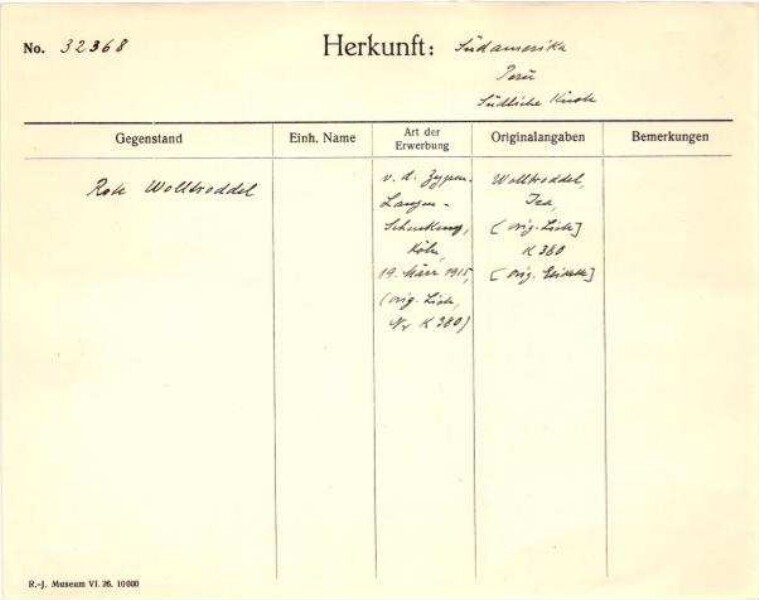 No. 32368
Herkunft: Südamerika
Perú
Südliche Küste
Gegenstand
Einh. Name
Art der
Erwerbung
Originalangaben
Bemerkungen
Rote Wolltroddel
v. d. Zypen-
Langen-
Schenkung,
Köln,
19. März 1915,
(orig. Liste,
Nr K 380)
Wolltroddel,
Ica,
[orig. Liste]
K 380
[orig. Etikett]
R.-J. Museum VI. 26. 10000